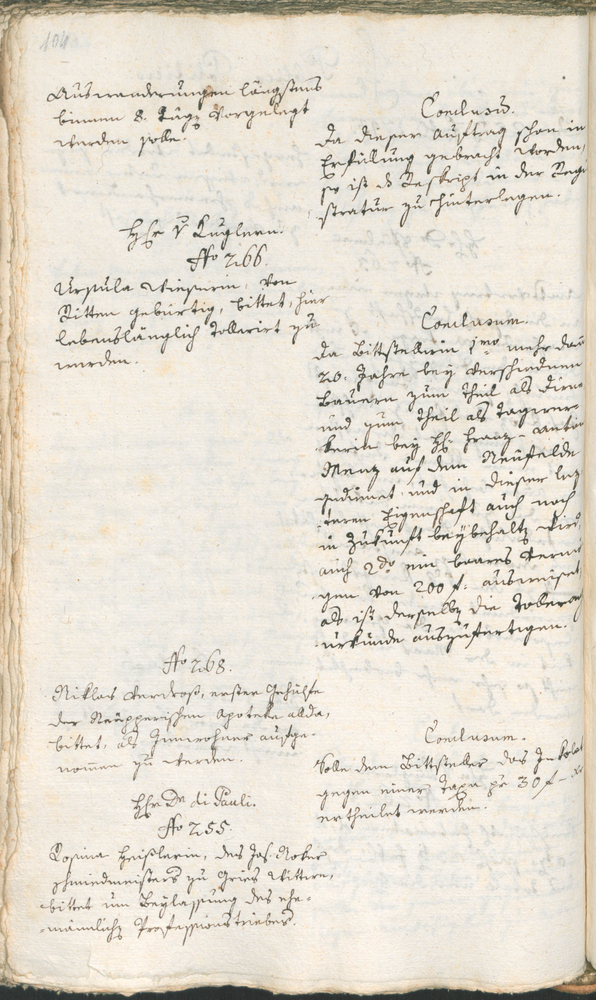 104
Auswanderungen längstens
binnen 8. Tägn vorgelegt
werden solle.
Conclusum.
Da dieser Auftrag schon in
Erfüllung gebracht worden,
so ist das Reskript in der Regi
stratur zu hinterlegen.
Hhr v Kuglern.
No 266.
Ursula Wieserin, von
Ritten gebürtig, bittet, hier
lebenslänglich tollerirt zu
werden.
Conclusum.
Da Bittstellerin 1mo mehr dan
20. Jahre bey verschiednen
Bauern zum Theil als Dirne
und zum Theil als Tagwer
kerin bey H: Franz Anton
Menz auf dem Neufelde
gedienet und in dieser lez
teren Eigenschaft auch noch
in Zukunft beybehaltn wird,
auch 2do ein baares Vermö
gen von 200 f. ausweiset
als ist derselbn die Toleranz
urkunde auszufertigen.
No 268.
Niklas Verdroß, erster Gehülfe
der Apoteke allda,
bittet, als Innwohner aufge-
nommen zu werden.
Conclusum.
Solle dem Bittsteller das Inkolat
gegen einer Taxa pr 30 f
ertheilet werden.
Hhr Dr di Pauli.
No 255.
Rosina Heißlerin, des Jos.
Schmiedmeisters zu Gries Wittwe,
bittet um Beylassung des ehe-
männlichn Professionstriebes.